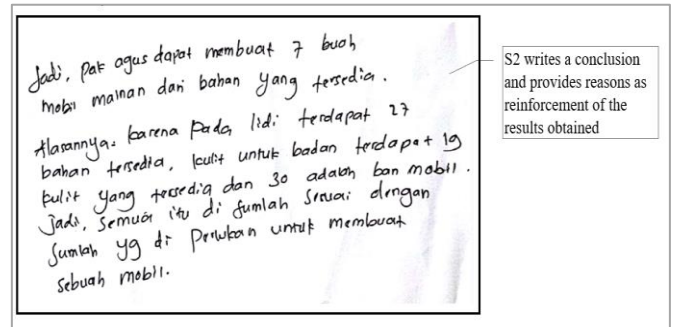 Jadi, Pak agus dapat membuat 7 buah
mobil mainan dari bahan yang tersedia.
Alasannya. karena pada lidi terdapat 27
bahan tersedia, kulit untuk badan terdapat 19
kulit yang tersedia dan 30 adalah ban mobil.
Jadi, semua itu di jumlah sesuai dengan
jumlah yg di perlukan untuk membuat
sebuah mobil.
S2 writes a conclusion
and provides reasons as
reinforcement of the
results obtained